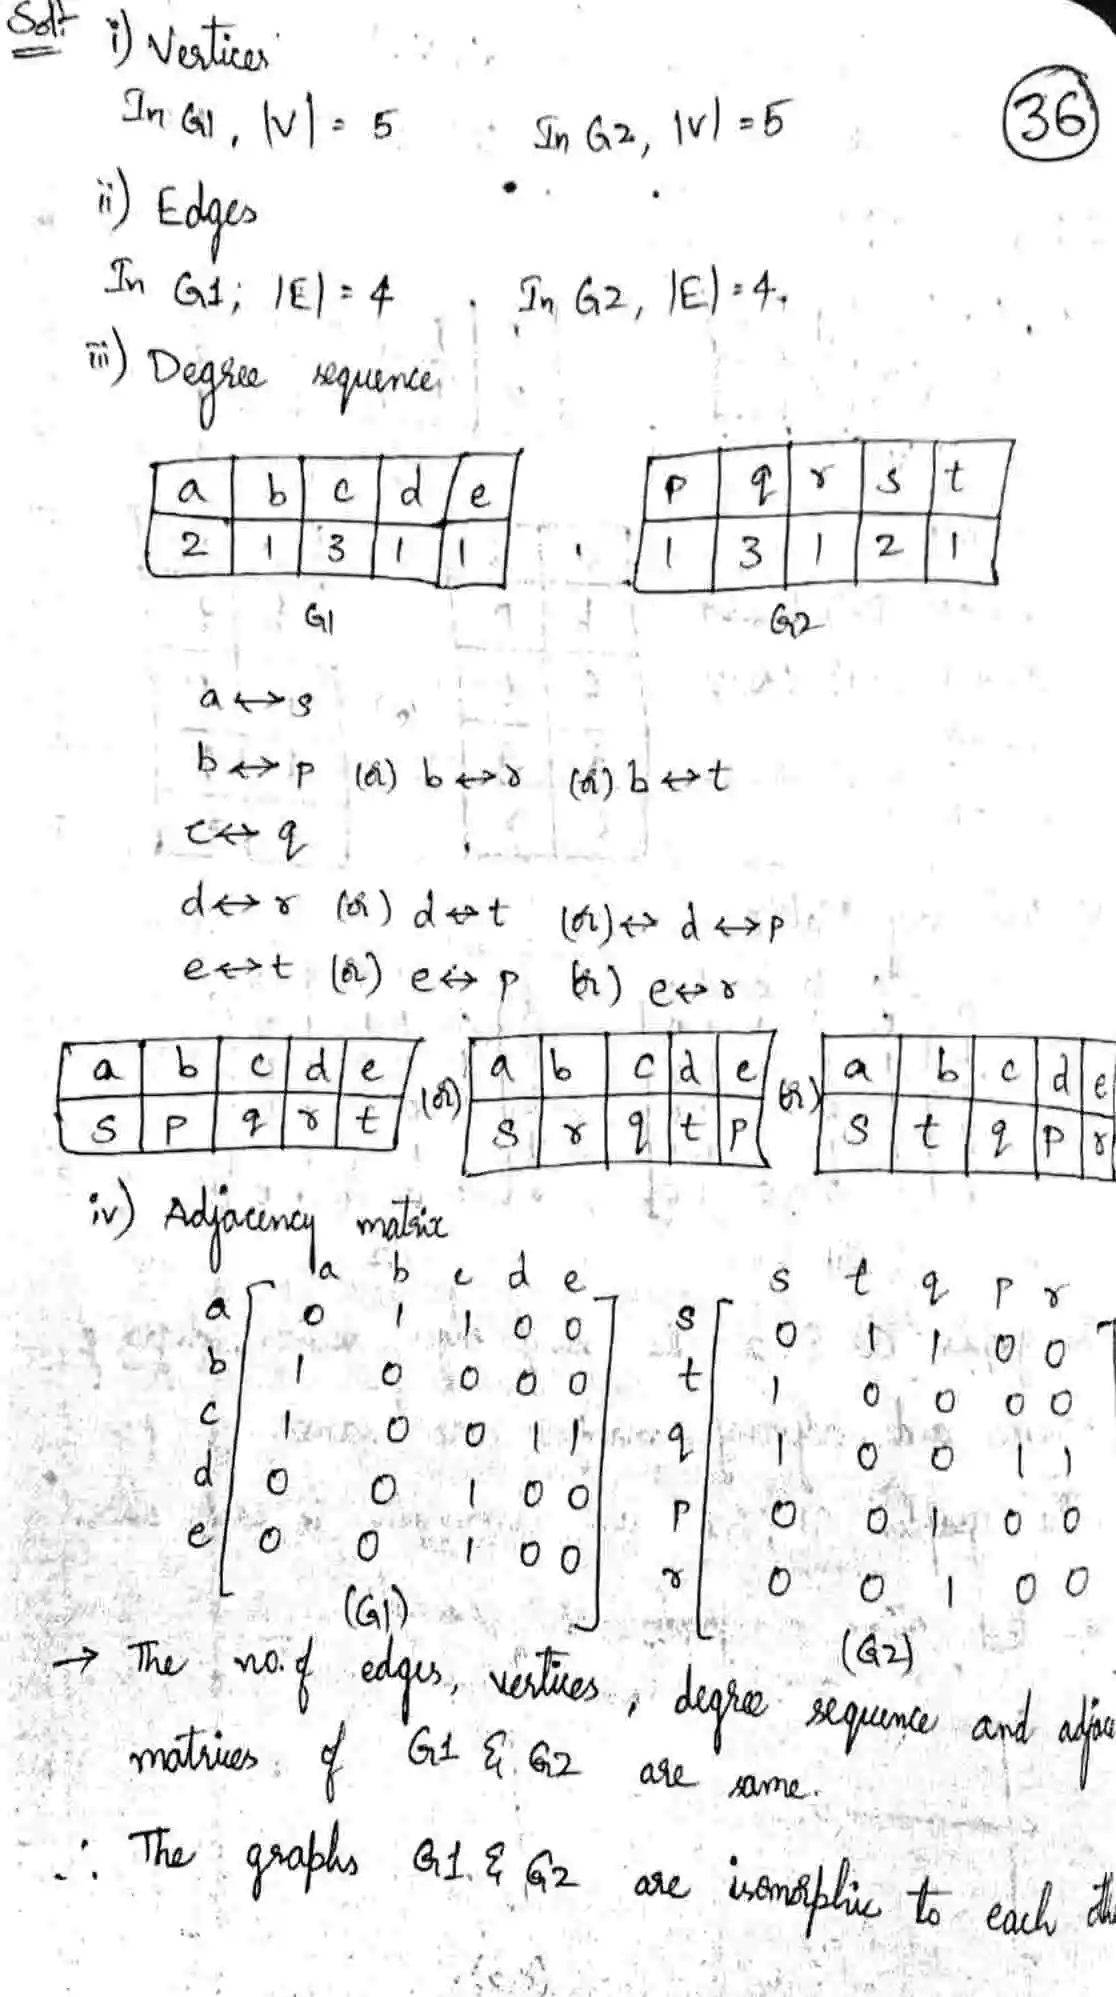 Sol:
i) Vertices
In G1, |V| = 5 In G2, |V| = 5
36
ii) Edges
In G1; |E| = 4 In G2, |E| = 4.
iii) Degree sequence
a b c d e
2 1 3 1 1
G1
p q r s t
1 3 1 2 1
G2
a ↔ s
b ↔ p (or) b ↔ r (or) b ↔ t
c ↔ q
d ↔ r (or) d ↔ t (or) ↔ d ↔ p
e ↔ t (or) e ↔ p (or) e ↔ r
a b c d e (or) a b c d e (or) a b c d e
s p q r t s r q t p s t q p r
iv) Adjacency matrix
a b c d e s t q p r
a 0 1 1 0 0 s 0 1 1 0 0
b 1 0 0 0 0 t 1 0 0 0 0
c 1 0 0 1 1 q 1 0 0 1 1
d 0 0 1 0 0 p 0 0 1 0 0
e 0 0 1 0 0 r 0 0 1 0 0
(G1) (G2)
→ The no. of edges, vertices, degree sequence and adjac
matrices of G1 & G2 are same.
∴ The graphs G1 & G2 are isomorphic to each oth